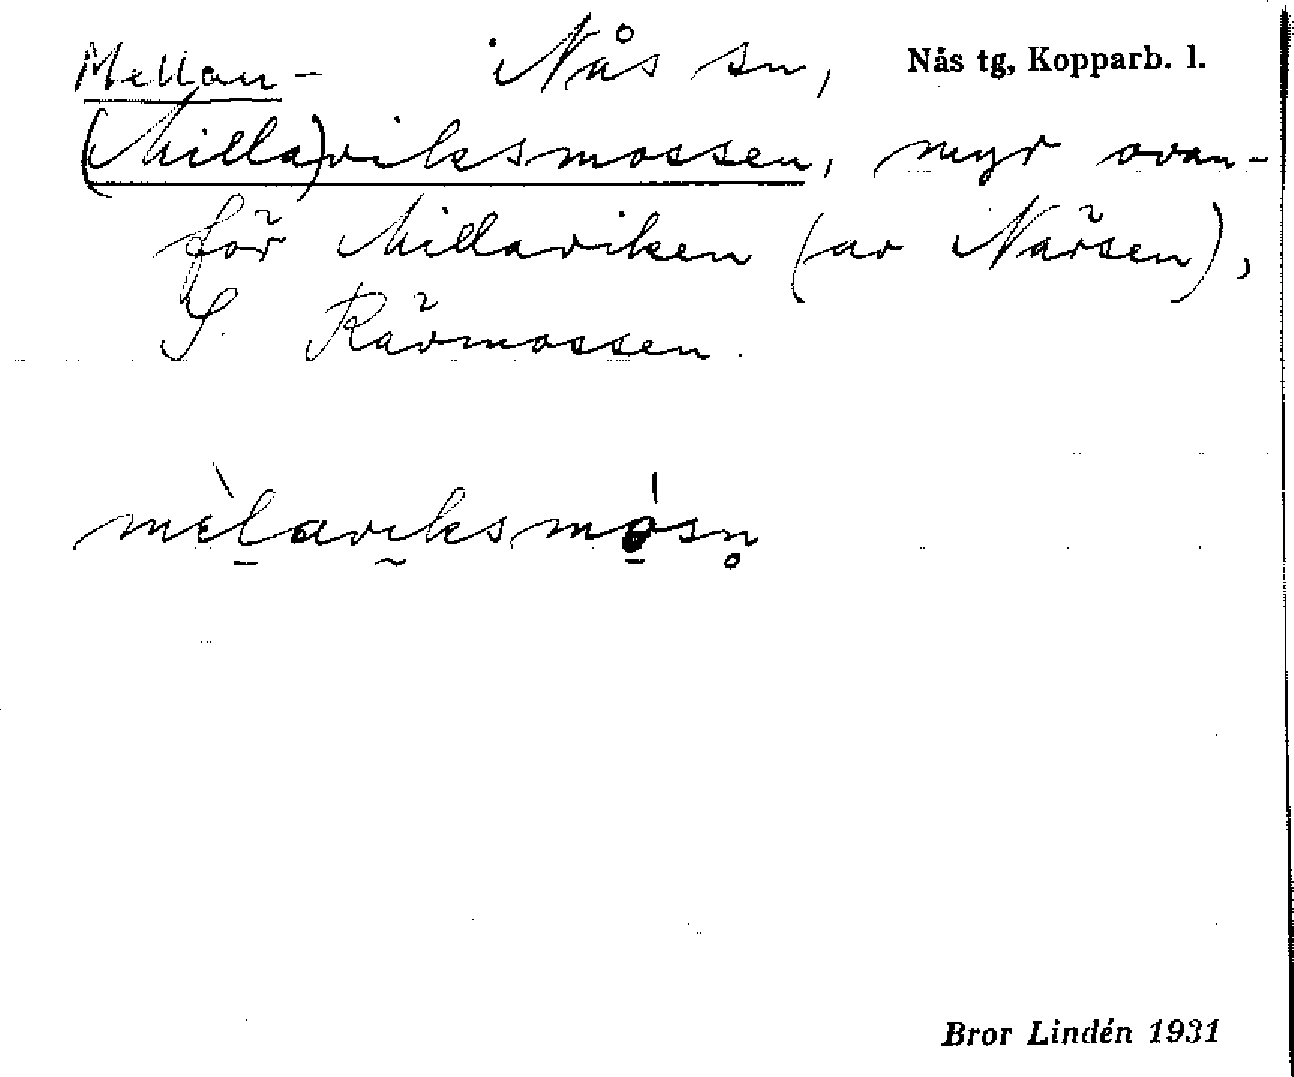 Mellan- Nås sn, Nås tg, Kopparb. l.
(Milla)viksmossen, myr ovan-
för Millaviken (av Närsen),
S. Rävmossen.
mèlaviksmósn̥
Bror Lindén 1931